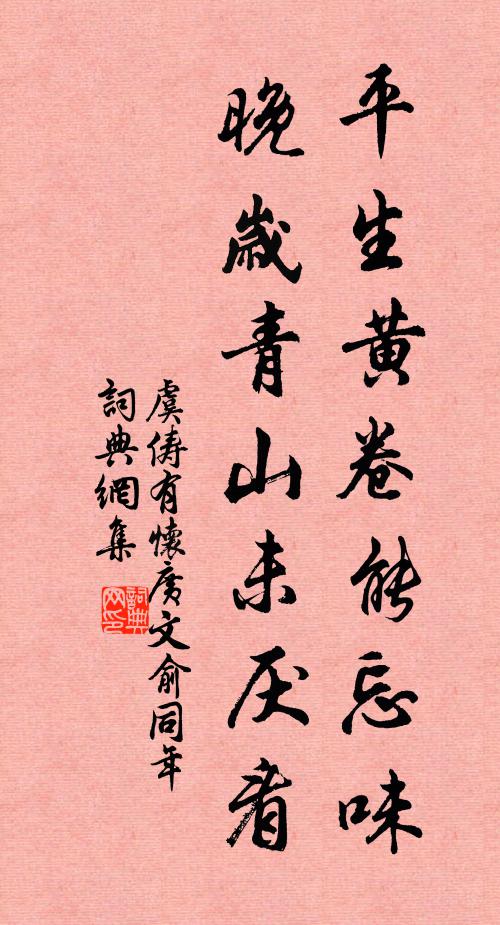 平生黄卷能忘味
晚歲青山未厌看
虞儔有懷廣文俞同年
詞典網集
詞典
网印